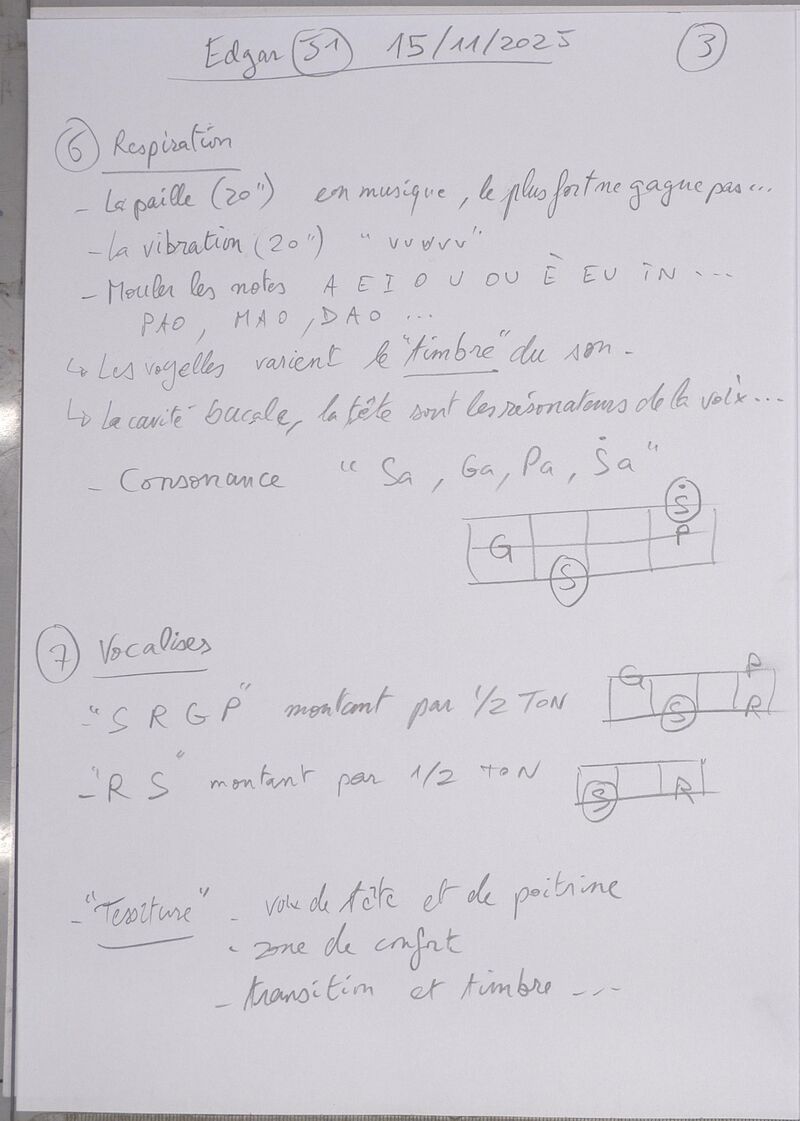 Edgar S1 15/11/2025 3
6 Respiration
- La paille (20") en musique, le plus fort ne gagne pas...
- La vibration (20") "vvvvv"
- Mouler les notes A E I O U OU È EU IN ...
PAO, MAO, DAO ...
↳ Les voyelles varient le "timbre" du son.
↳ La cavité bucale, la tête sont les résonateurs de la voix...
- Consonance "Sa, Ga, Pa, Ṡa"
Ṡ
G P
S
7 Vocalises
- "S R G P" montant par 1/2 TON
G P
S R
- "R S" montant par 1/2 TON
S R
- "Tessiture" - voix de tête et de poitrine
- zone de confort
- transition et timbre ...